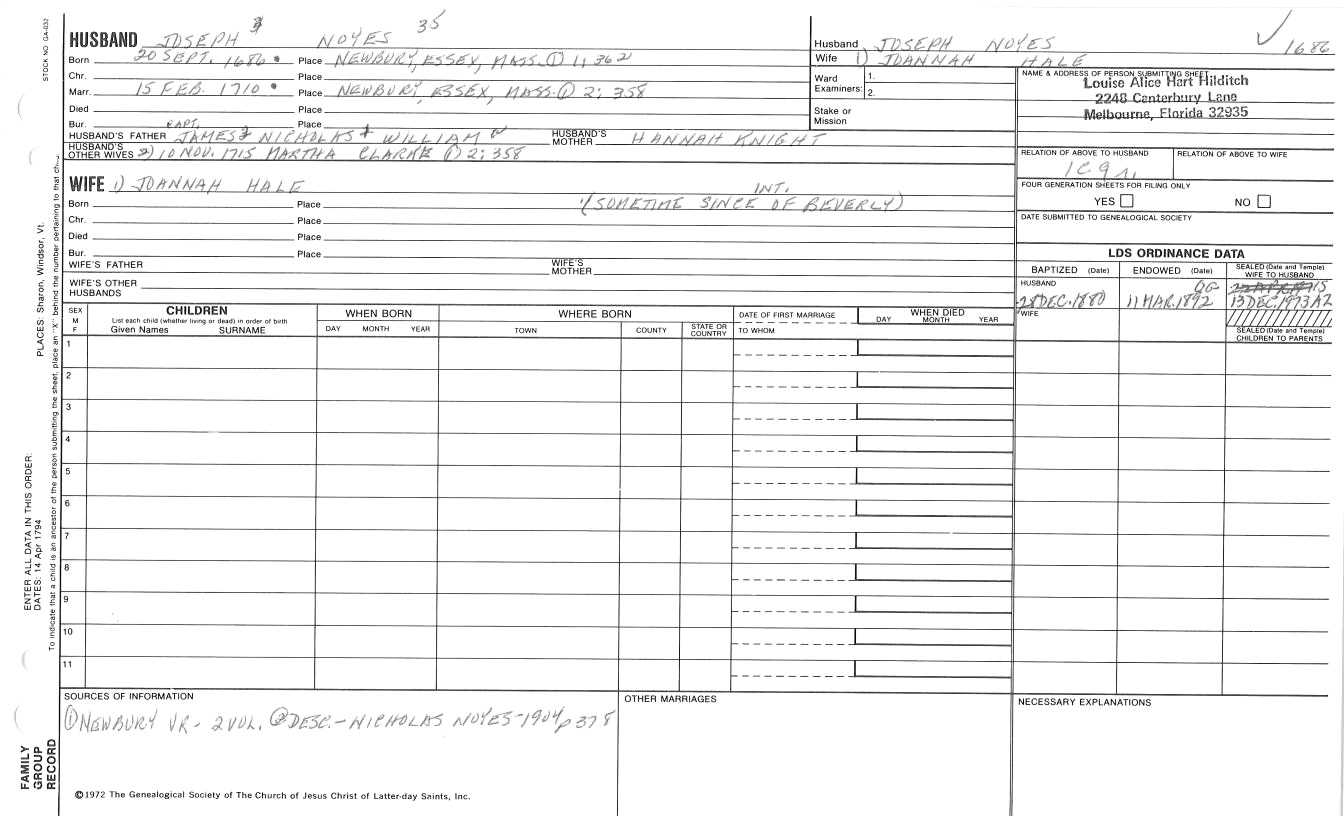 STOCK NO. GA-032
HUSBAND JOSEPH 3 NOYES 35
Born 20 SEPT. 1686 Place NEWBURY, ESSEX, MASS. ① 1; 362
Chr. Place
Marr. 15 FEB. 1710 Place NEWBURY, ESSEX, MASS. ① 2; 358
Died Place
Bur. Place
CAPT.
HUSBAND'S FATHER JAMES 2 NICHOLAS 1 WILLIAM HUSBAND'S MOTHER HANNAH KNIGHT
HUSBAND'S OTHER WIVES 2) 10 NOV. 1715 MARTHA CLARKE ① 2; 358
WIFE 1) JOANNAH HALE
INT.
(SOMETIME SINCE OF BEVERLY)
Born Place
Chr. Place
Died Place
Bur. Place
WIFE'S FATHER WIFE'S MOTHER
WIFE'S OTHER HUSBANDS
Husband JOSEPH NOYES 1686
Wife 1) JOANNAH HALE
Ward Examiners: 1. 2.
Stake or Mission
NAME & ADDRESS OF PERSON SUBMITTING SHEET
Louise Alice Hart Hilditch
2248 Canterbury Lane
Melbourne, Florida 32935
RELATION OF ABOVE TO HUSBAND RELATION OF ABOVE TO WIFE
1C9r.
FOUR GENERATION SHEETS FOR FILING ONLY
YES NO
DATE SUBMITTED TO GENEALOGICAL SOCIETY
LDS ORDINANCE DATA
BAPTIZED (Date) ENDOWED (Date) SEALED (Date and Temple) WIFE TO HUSBAND
HUSBAND
28 DEC. 1880 11 MAR. 1892 13 DEC 1973 AZ
WIFE
SEALED (Date and Temple) CHILDREN TO PARENTS
SEX M F CHILDREN WHEN BORN WHERE BORN DATE OF FIRST MARRIAGE WHEN DIED
List each child (whether living or dead) in order of birth
Given Names SURNAME DAY MONTH YEAR TOWN COUNTY STATE OR COUNTRY TO WHOM DAY MONTH YEAR
1
2
3
4
5
6
7
8
9
10
11
SOURCES OF INFORMATION OTHER MARRIAGES NECESSARY EXPLANATIONS
① NEWBURY VR - 2 VOL. ② DESC. - NICHOLAS NOYES - 1904 p 378
©1972 The Genealogical Society of The Church of Jesus Christ of Latter-day Saints, Inc.
FAMILY GROUP RECORD
ENTER ALL DATA IN THIS ORDER:
DATES: 14 Apr 1794 PLACES: Sharon, Windsor, Vt.
To indicate that a child is an ancestor of the person submitting the sheet, place an "X" behind the number pertaining to that